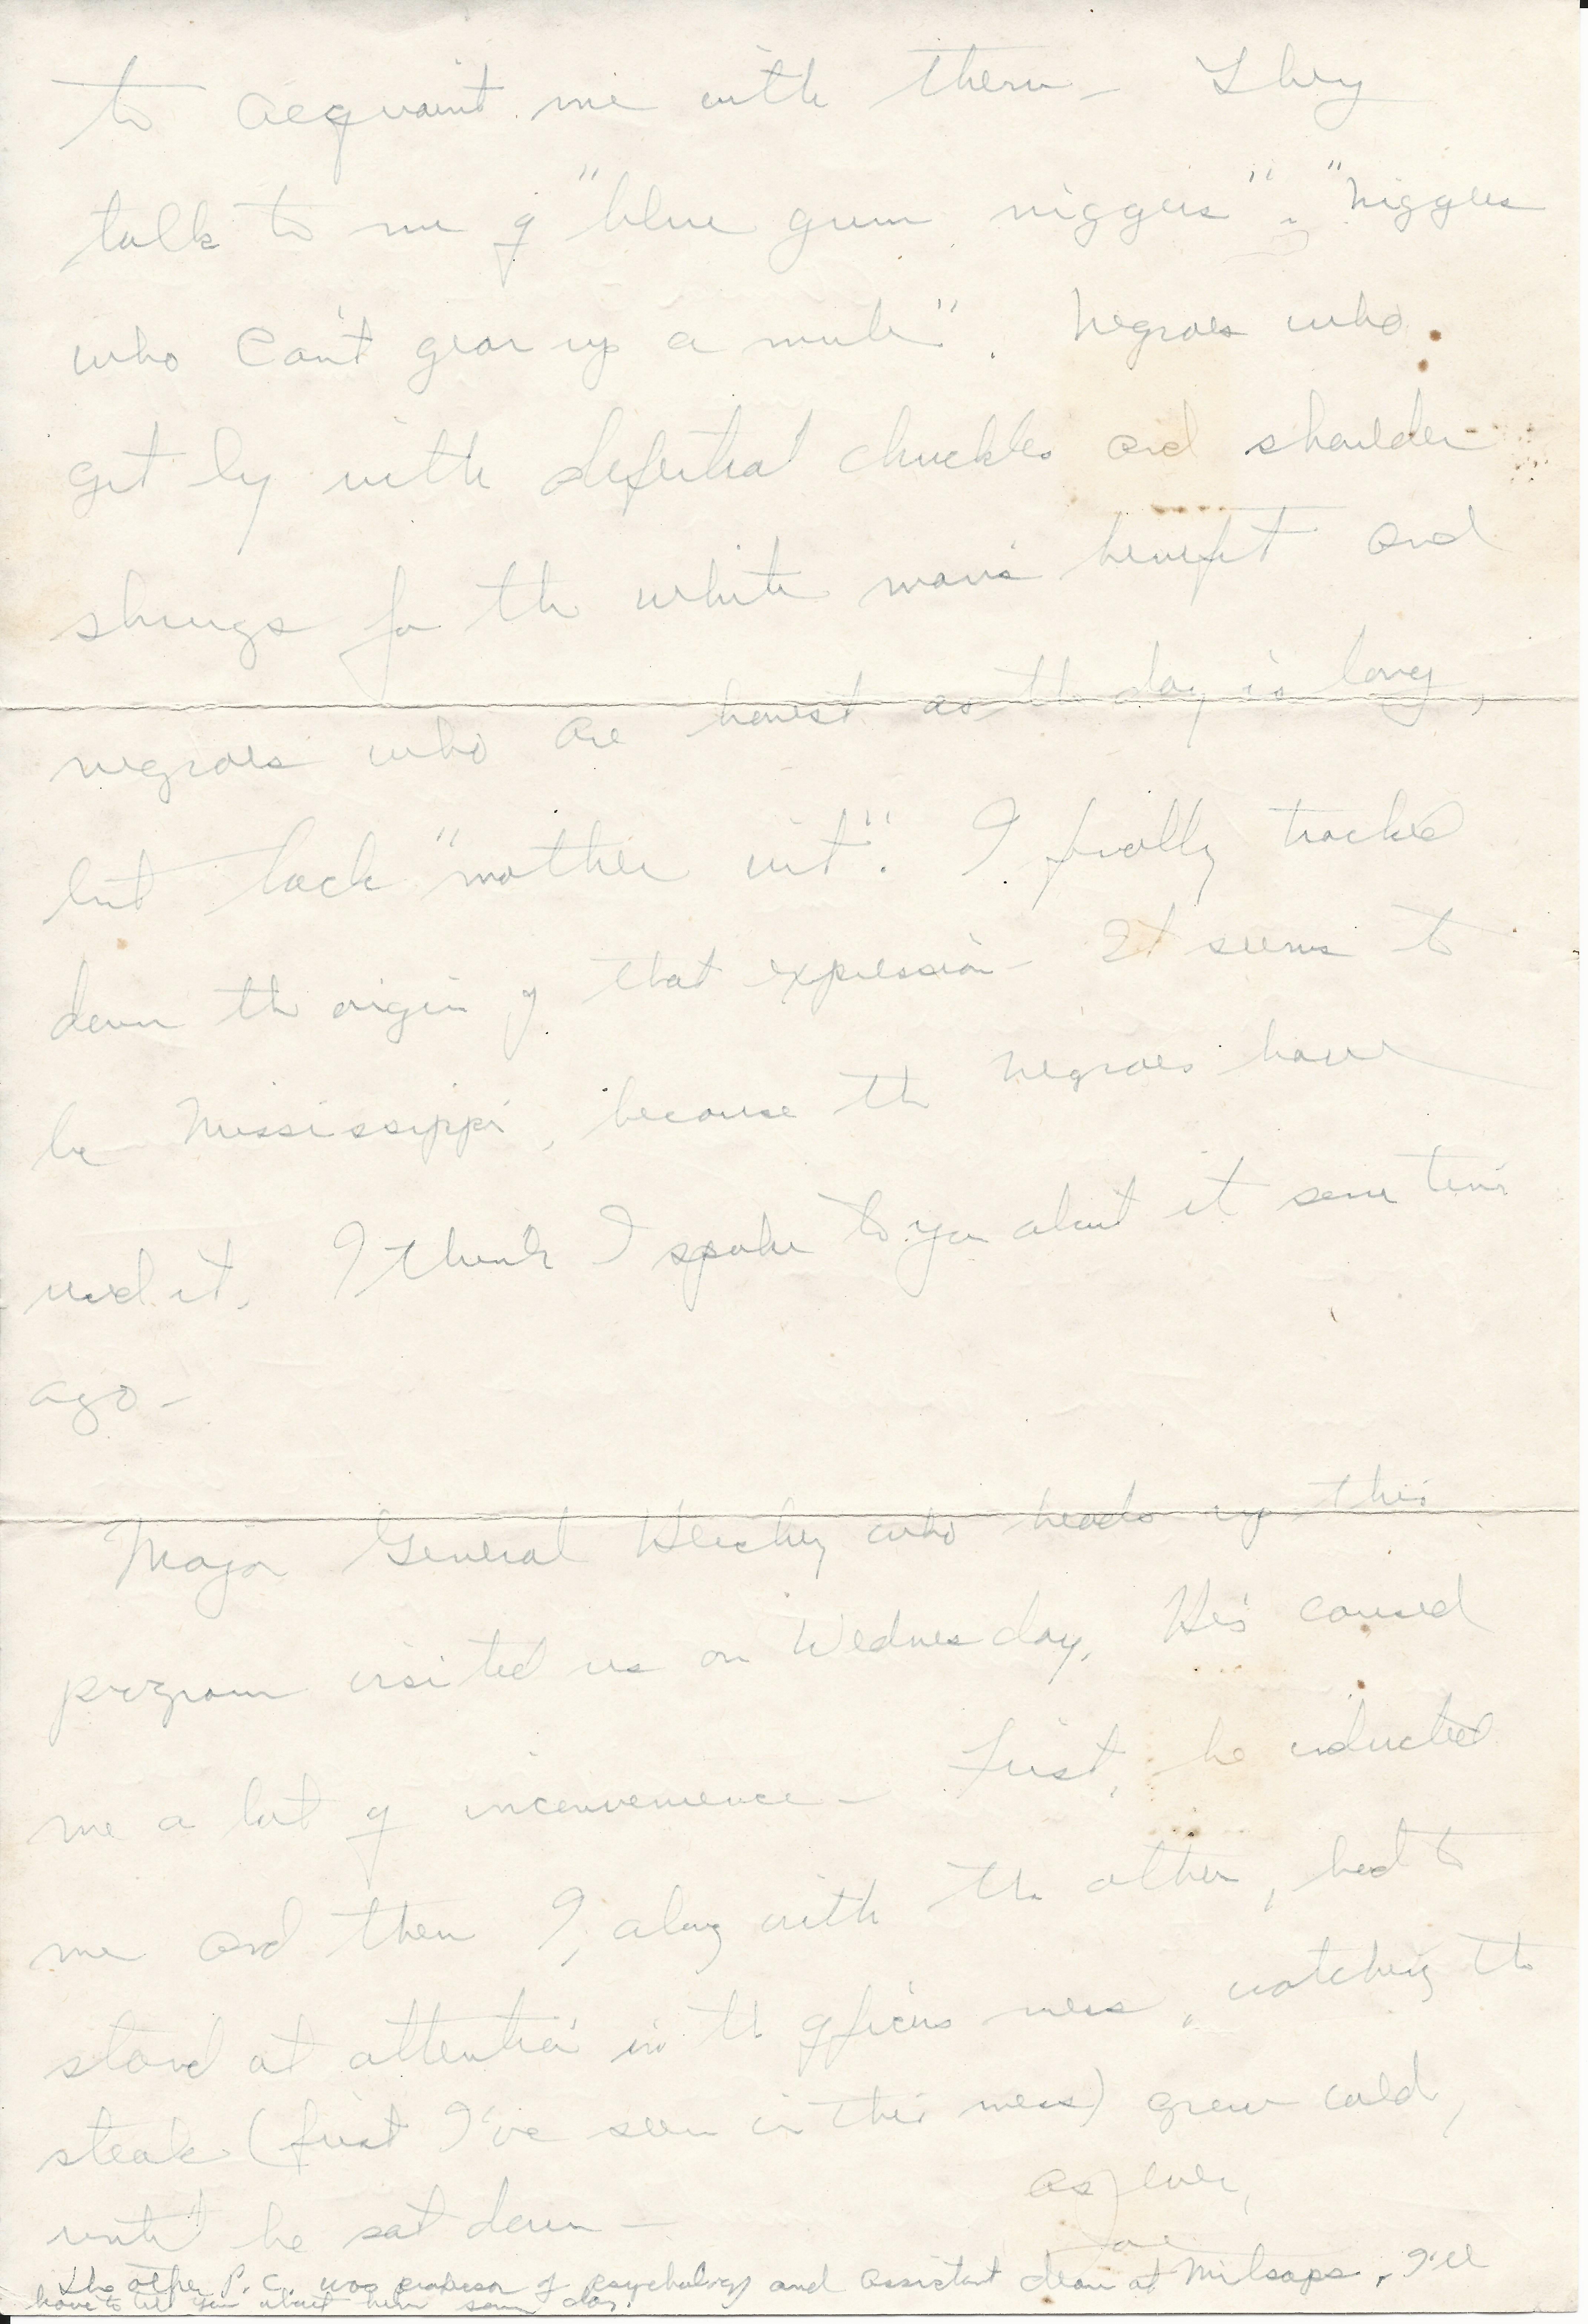 to acquaint me with them - They
talk to me of "blue gum niggers", "Niggers
who can't gear up a mule". Negroes who
get by with deferential chuckles and shoulder
shrugs for the white man's benefit and
negroes who are honest as the day is long,
but lack "mother wit". I finally tracked
down the origin of that expression - It seems to
be Mississippi, because the negroes have
used it. I think I spoke to you about it some time
ago -
Major General Hershey who heads up this
program visited us on Wednesday. He's caused
me a lot of inconvenience - First, he inducted
me and then I, along with the other, had to
stand at attention in the officers mess, watching the
steak (first I've seen in this mess) grow cold,
until he sat down -
as ever,
Joe
The other P. C. was professor of psychology and assistant dean at Milsaps. I'll
have to tell you about him some day.